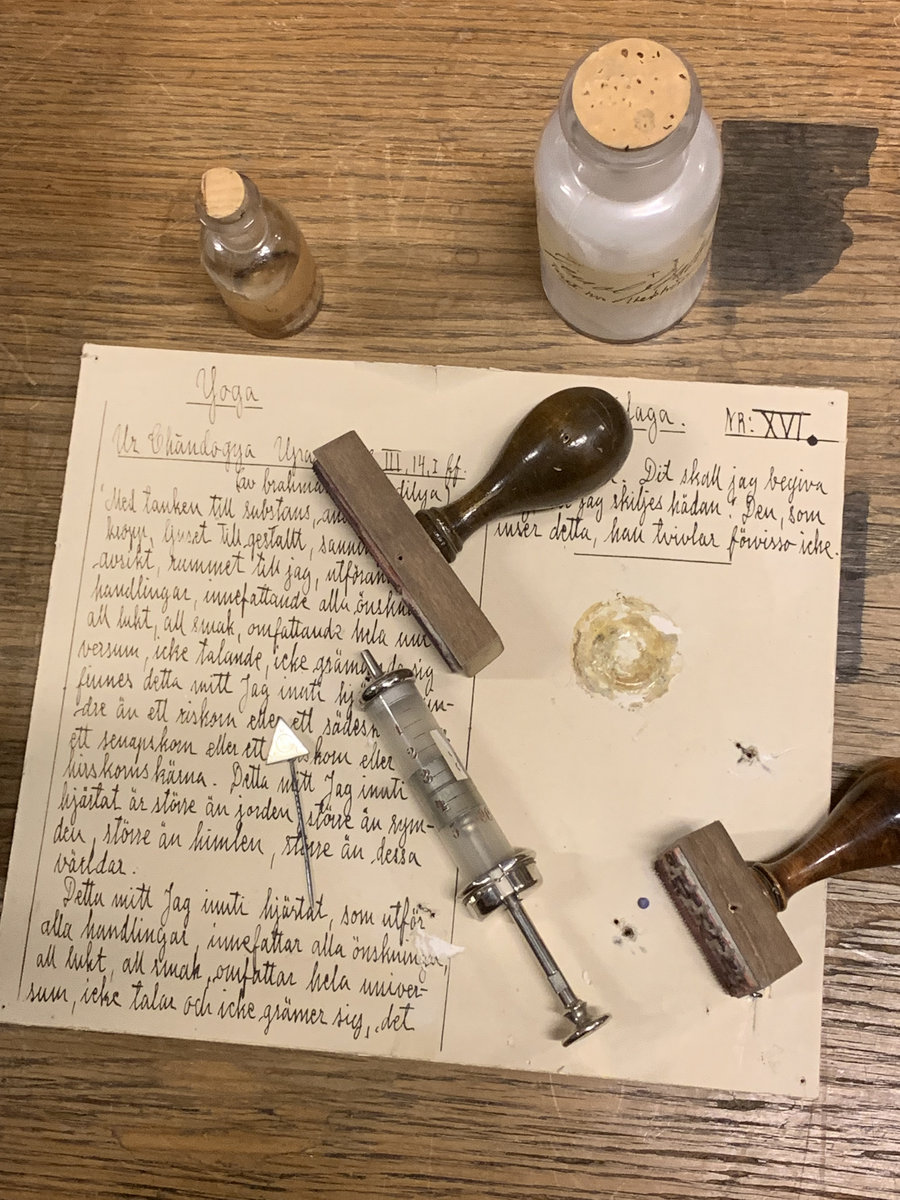 Yoga
Ur Chāndogya Upa III, 14.1 ff.
(av brahma dilya)
"Med tanken till substans, an
kropp, ljuset till gestallt, sann
avsikt, rummet till jag, utföran
handlingar, innefattande alla önskn
all lukt, all smak, omfattande hela uni
versum, icke talande, icke gräm de sig
finnes detta mitt Jag inuti hj n-
dre än ett riskorn eller ett sädesk
ett senapskorn eller ett skorn eller
hirskorns kärna. Detta mitt Jag inuti
hjärtat är större än jorden, större än rym-
den, större än himlen, större än dessa
världar.
Detta mitt Jag inuti hjärtat, som utför
alla handlingar, innefattar alla önskningar,
all lukt, all smak, omfattar hela univer-
sum, icke talar och icke grämer sig, det
laga. NR: XVI.
Dit skall jag begiva
jag skiljes hädan". Den, som
inser detta, han tvivlar förvisso icke.